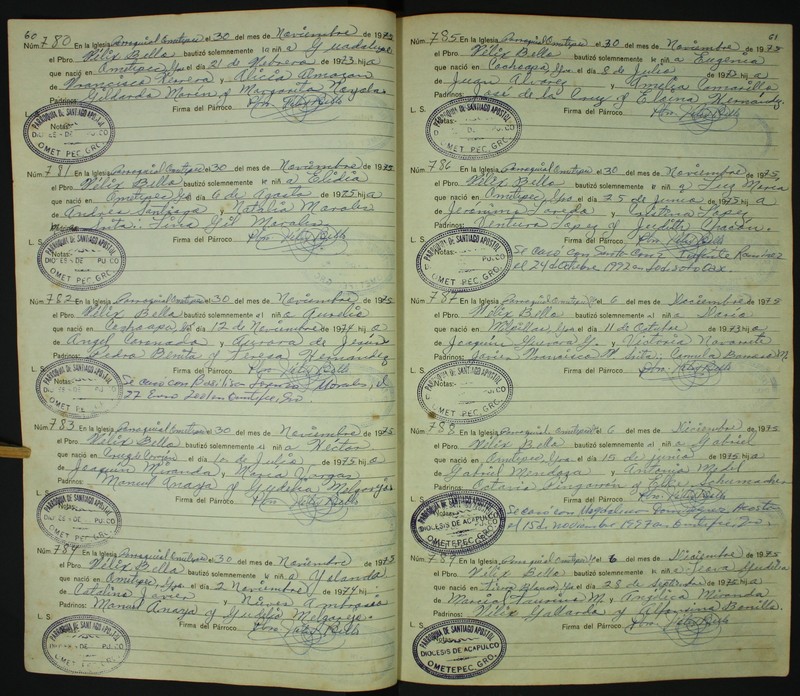 60
Núm. 780 En la Iglesia Parroquial Ometepec el 30 del mes de Noviembre de 1975
el Pbro. Félix Bello bautizó solemnemente niña Guadalupe
que nació en Ometepec Gro el día 21 de Febrero de 1975 hija
de Francisco Rivera y Alicia Almazan
Padrinos: Gildardo Marin y Margarita Noyola
L. S. Firma del Párroco Pbro. Félix Bello
Notas:
PARROQUIA DE SANTIAGO APOSTOL
DIOCESIS DE ACAPULCO
OMETEPEC, GRO.
Núm. 781 En la Iglesia Parroquial Ometepec el 30 del mes de Noviembre de 1975
el Pbro. Félix Bello bautizó solemnemente niña Elidia
que nació en Ometepec Gro el día 6 de Agosto de 1975 hija
de Andres Santiago y Natalia Morales
Gil Morales
L. S. Firma del Párroco Pbro. Félix Bello
PARROQUIA DE SANTIAGO APOSTOL
DIOCESIS DE ACAPULCO
OMETEPEC, GRO.
Núm. 782 En la Iglesia Parroquial Ometepec el 30 del mes de Noviembre de 1975
el Pbro. Félix Bello bautizó solemnemente niña Aurelia
que nació en Cochoapa el día 12 de Noviembre de 1974 hija
de Angel Coronado y Aurora de Jesús
Padrinos: Pedro Benito y Teresa Hernandez
L. S. Firma del Párroco Pbro. Félix Bello
Notas: Se caso con Basilio Morales, el
22 Enero 2000 en Ometepec, Gro.
PARROQUIA DE SANTIAGO APOSTOL
OMETEPEC, GRO.
Núm. 783 En la Iglesia Parroquial Ometepec el 30 del mes de Noviembre de 1975
el Pbro. Félix Bello bautizó solemnemente el niño Héctor
que nació en el día 1o de Julio de 1975 hijo
de Joaquin Miranda y Maria Vargas
Padrinos: Manuel Anaya y Yudelia Melgarejo
L. S. Firma del Párroco Pbro. Félix Bello
Notas:
PARROQUIA DE SANTIAGO APOSTOL
OMETEPEC, GRO.
Núm. 784 En la Iglesia Parroquial Ometepec el 30 del mes de Noviembre de 1975
el Pbro. Félix Bello bautizó solemnemente niña Yolanda
que nació en Ometepec, Gro el día 2 Noviembre de 1974 hija
de Catalino Javier y Nieves Ambrosio
Padrinos: Manuel Anaya y Yudelia Melgarejo
L. S. Firma del Párroco Pbro. Félix Bello
PARROQUIA DE SANTIAGO APOSTOL
OMETEPEC, GRO.
61
Núm. 785 En la Iglesia Parroquial Ometepec el 30 del mes de Noviembre de 1975
el Pbro. Félix Bello bautizó solemnemente niña Eugenia
que nació en Cochoapa, Gro el día 8 de Julio de 1975 hija
de Juan Alvarez y Amelia Camarillo
Padrinos: José de la Cruz y Elaina Hernández
L. S. Firma del Párroco Pbro. Félix Bello
Notas:
PARROQUIA DE SANTIAGO APOSTOL
OMETEPEC, GRO.
Núm. 786 En la Iglesia Parroquial Ometepec el 30 del mes de Noviembre de 1975
el Pbro. Félix Bello bautizó solemnemente niña Luz Maria
que nació en Ometepec, Gro el día 25 de Junio de 1975 hija
de Jeronimo Loreda y Cristina Lopez
Padrinos: Ventura Lopez y Judith Chacón
L. S. Firma del Párroco Pbro. Félix Bello
Se caso con Santo Cruz Ramirez
el 24 octubre 1992 en
PARROQUIA DE SANTIAGO APOSTOL
OMETEPEC, GRO.
Núm. 787 En la Iglesia Parroquial Ometepec el 6 del mes de Diciembre de 1975
el Pbro. Félix Bello bautizó solemnemente niña Maria
que nació en Gro el día 11 de Octubre de 1973 hija
de Joaquin Guevara G. y Victoria Navarrete
Padrinos: Javier M. Srita. Camila
L. S. Firma del Párroco Pbro. Félix Bello
Notas:
PARROQUIA DE SANTIAGO APOSTOL
OMETEPEC, GRO.
Núm. 788 En la Iglesia Parroquial Ometepec el 6 del mes de Diciembre de 1975
el Pbro. Félix Bello bautizó solemnemente el niño Gabriel
que nació en Ometepec, Gro el día 15 de junio de 1975 hijo
de Gabriel Mendoza y Antonia Medel
Padrinos: Octavio y
L. S. Firma del Párroco Pbro. Félix Bello
Notas: Se caso con Magdalena Acosta
el 15 de noviembre 1997 en Ometepec, Gro.
PARROQUIA DE SANTIAGO APOSTOL
DIOCESIS DE ACAPULCO
OMETEPEC, GRO.
Núm. 789 En la Iglesia Parroquial Ometepec el 6 del mes de Diciembre de 1975
el Pbro. Félix Bello bautizó solemnemente niña
que nació en Tierra Blanca, Gro el día 28 de Septiembre de 1975 hija
de M. y Angélica Miranda
Padrinos: Félix Gallardo y Alfonsina Bonilla
L. S. Firma del Párroco Pbro. Félix Bello
PARROQUIA DE SANTIAGO APOSTOL
DIOCESIS DE ACAPULCO
OMETEPEC GRO.